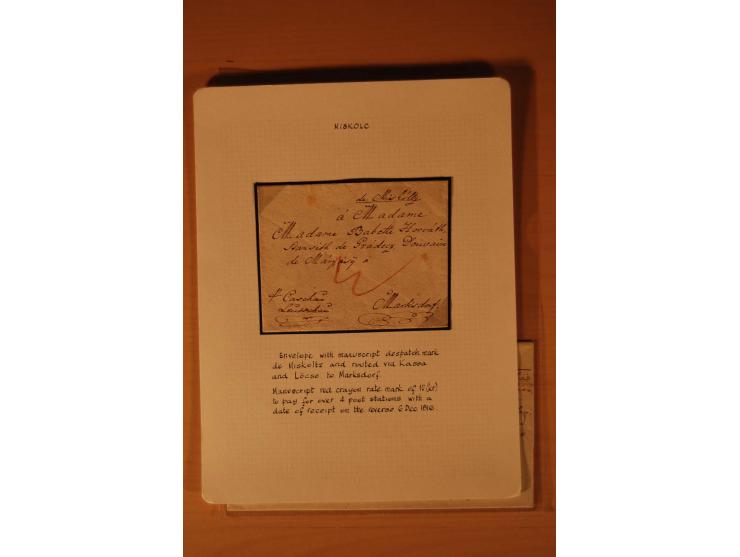 MISKOLC
de Miskóltz
á Madame
Madame Babette Horváth
de Prádocz Douvain
de
Marksdorf.
Leutschau
Envelope with manuscript despatch mark
de Miskoltz and routed via Kassa
and Löcse to Marksdorf.
Manuscript red crayon rate mark of 12 (kr)
to pay for over 4 post stations with a
date of receipt on the reverse 6 Dec 1816.